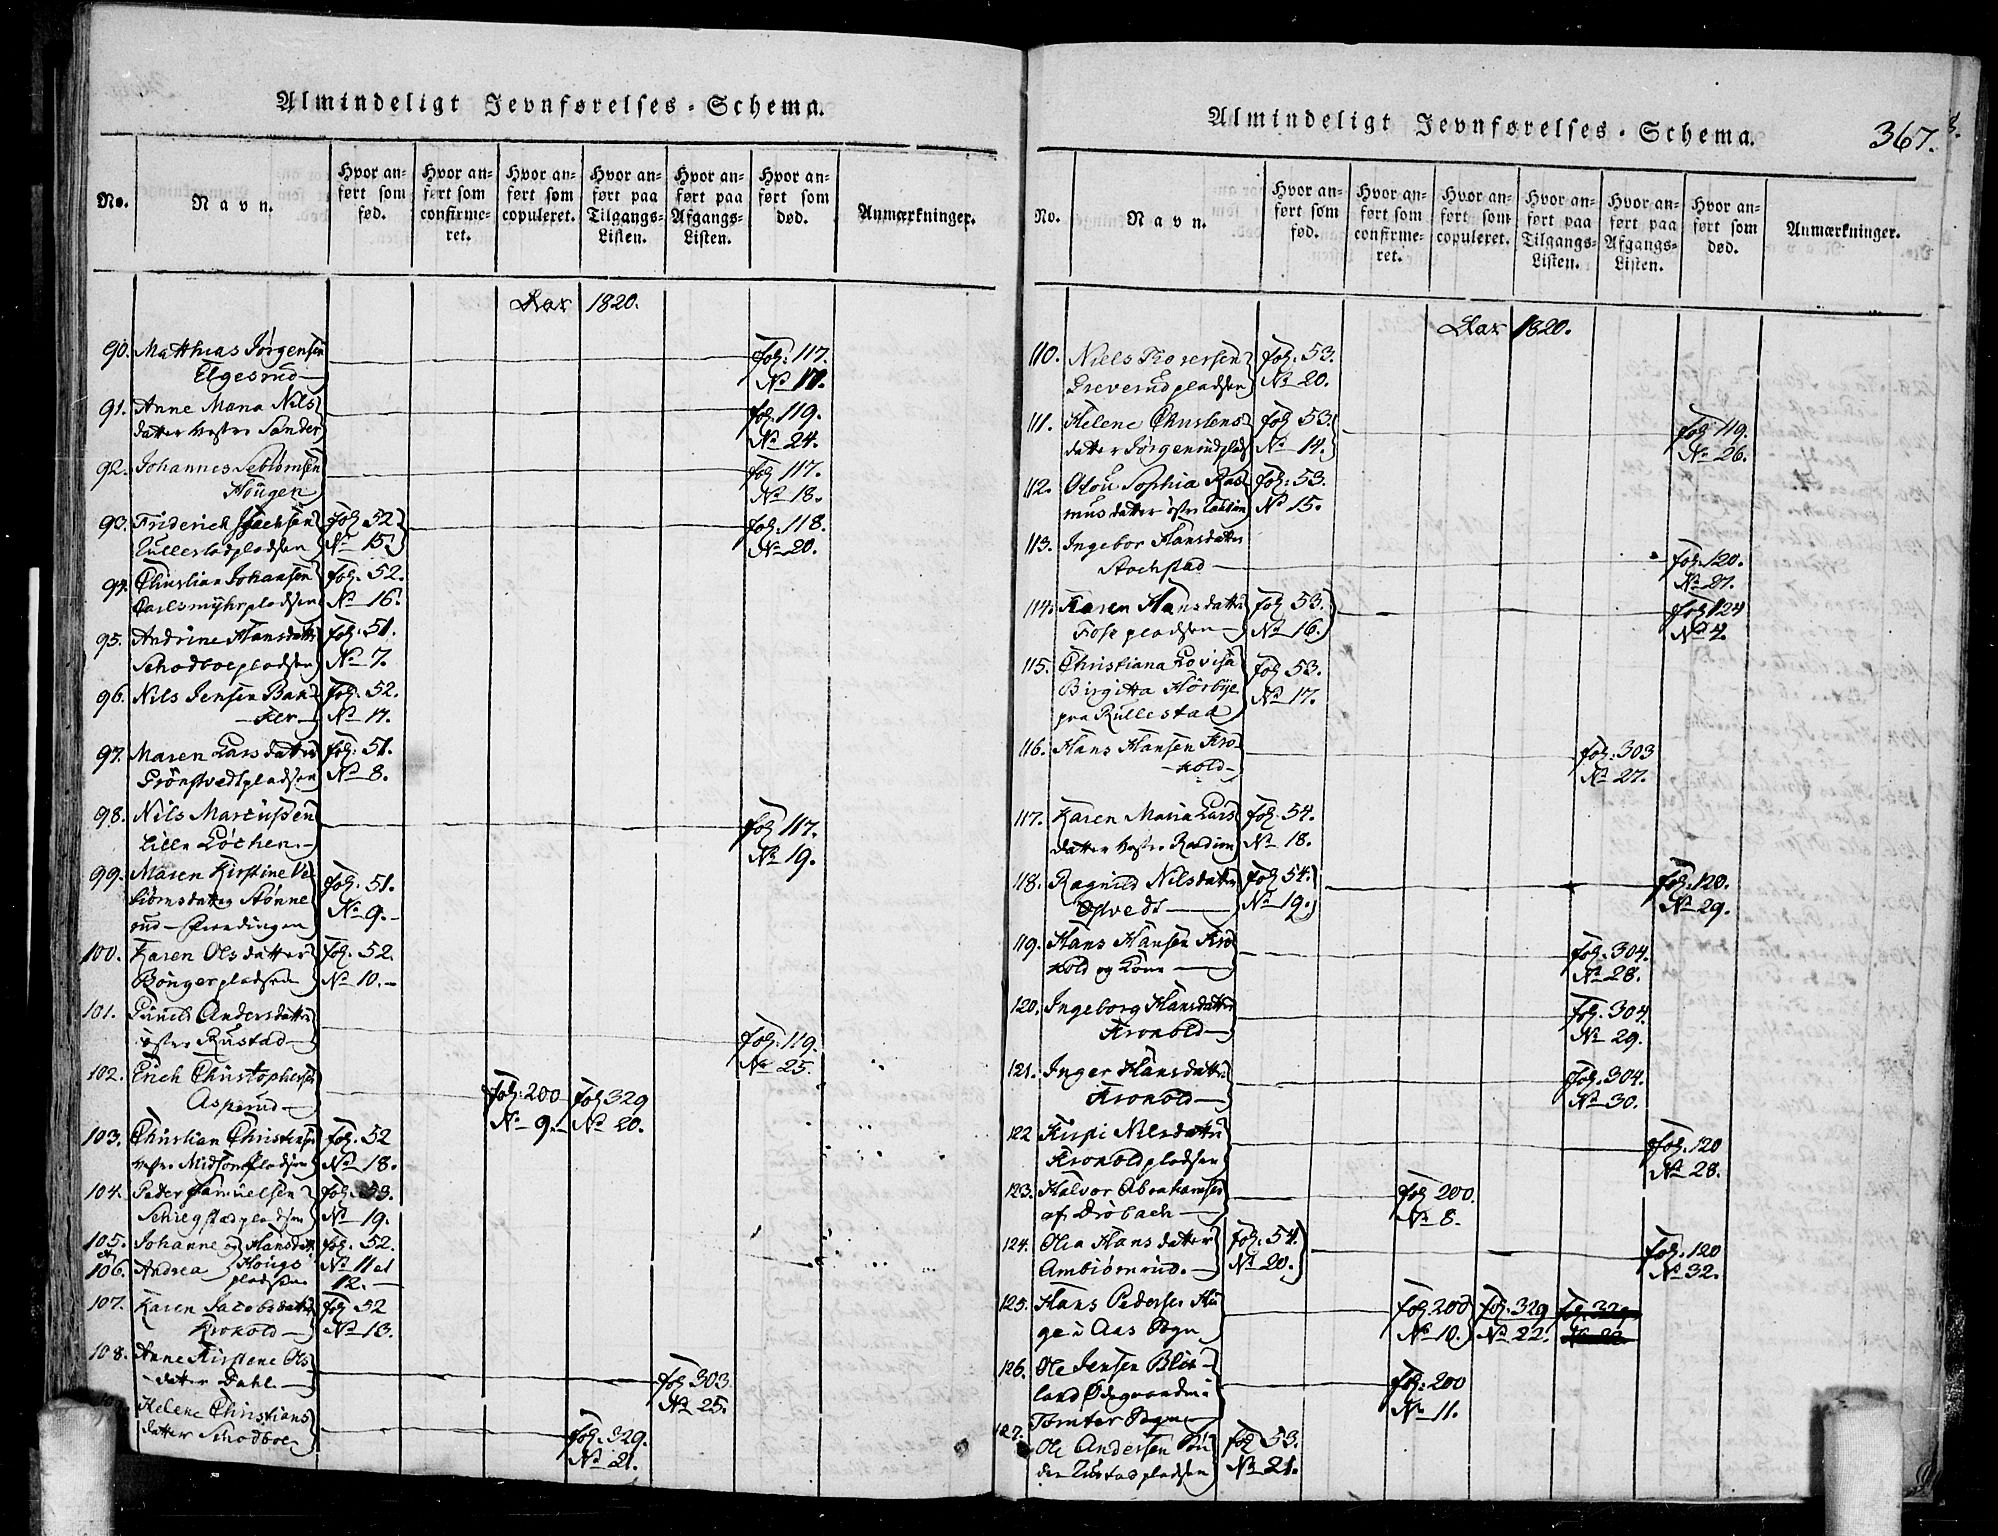 Almindeligt Jevnførelses-Schema.
No.
Navn.
Hvor anført som fød.
Hvor anført som confirmeret.
Hvor anført som copuleret.
Hvor anført paa Tilgangs-Listen.
Hvor anført paa Afgangs-Listen.
Hvor anført som død.
Anmærkninger.
Aar 1820.
90. Matthias Jørgensen fol: 117.
Elgesrud No 17.
91. Anne Maria Nils fol. 119.
datter vestre Sander No 24.
92. Johannes fol 117.
Hougen No 18.
93. Friderich fol 52 fol: 118.
No 15. No 20.
94. Christian Johansen fol. 52.
No 16.
95. Andrine Hansdatter fol: 51.
Schodboepladsen No 7.
96. Nils Jensen Bak fol: 52.
ker No 17.
97. Maren Larsdatter fol: 51.
No 8.
98. Nils fol 117.
Lille No 19.
99. Maren Kirstine fol: 51.
No 9.
100. Karen Olsdatter fol. 52.
No 10.
101. Andersdatter fol: 119.
østre Rustad No 25.
102. Erich Christophersen fol: 200 fol 329
Asperud No 9. No 20.
103. Christian Christensen fol. 52
No 18.
104. Peder Samuelsen fol. 53.
No 19.
105. Johanne og Hansdatt fol: 52.
et Hougs No 11 et
106. Andrea pladsen 12.
107. Karen Jacobsdatter fol 52
Krokold No 13.
108. Anne Kirstene Ols fol 303
datter Dahl No 25.
Helene Christians fol. 329.
datter Schodboe No 21.
Almindeligt Jevnførelses-Schema.
367.
No.
Navn.
Hvor anført som fød.
Hvor anført som confirmeret.
Hvor anført som copuleret.
Hvor anført paa Tilgangs-Listen.
Hvor anført paa Afgangs-Listen.
Hvor anført som død.
Anmærkninger.
Aar 1820.
110. Niels fol: 53.
Greverudpladsen No 20.
111. Helene Christens fol 53. fol 119.
datter No 14. No 26.
112. Sophia Ras fol: 53.
musdatter østre No 15.
113. Ingebor Hansdatter fol 120.
Stochstad No 27.
114. Karen Hansdatter fol 53. fol 124
Foss pladsen No 16. No 4.
115. Christiana Lovisa fol 53.
Birgitta Hørbye No 17.
fra Rullestad
116. Hans Hansen Kro fol: 303
kold No 27.
117. Karen Maria Lars fol 54.
datter vestre No 18.
118. Ragnild Nilsdatter fol 54. fol: 120.
No 19. No 29.
119. Hans Hansen Kro fol. 304.
kold og Kone No 28.
120. Ingeborg Hansdatter fol. 304.
Krokold No 29.
121. Inger Hansdatter fol. 304.
Krokold No 30.
122 Nilsdatter fol. 120
Krokoldpladsen No 28.
123. Halvor Abrahamsen fol 200.
af Drøbach No 8.
124. Olea Hansdatter fol. 54. fol. 120
Ambiørnrud. No 20. No 32.
125. Hans Pedersen Hau fol 200 fol. 329 fol. 329
ge i Aas Sogn No 10. No 22. No 22
126. Ole Jensen fol: 200
land No 11.
Tomter Sogn
127. Ole Andersen fol 53.
No 21.